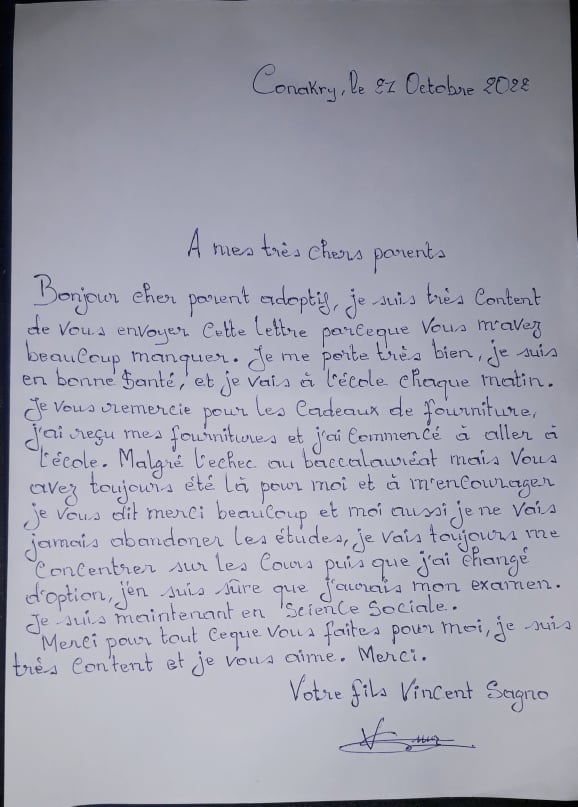 Conakry, le 27 Octobre 2022
A mes très chers parents
Bonjour cher parent adoptif, je suis très Content
de Vous envoyer Cette lettre parceque Vous m'avez
beaucoup manquer. Je me porte très bien, je suis
en bonne Santé, et je vais à l'école chaque matin.
Je Vous remercie pour les Cadeaux de fourniture,
j'ai reçu mes fournitures et j'ai Commencé à aller à
l'école. Malgré l'echec au baccalauréat mais Vous
avez toujours été là pour moi et à m'encourager
je vous dit merci beaucoup et moi aussi je ne Vais
jamais abandoner les études, je vais toujours me
Concentrer sur les Cours puis que j'ai changé
d'option, j'en suis sûre que j'aurais mon examen.
Je suis maintenant en Science Sociale.
Merci pour tout Ceque Vous faites pour moi, je suis
très Content et je vous aime. Merci.
Votre fils Vincent Sagno